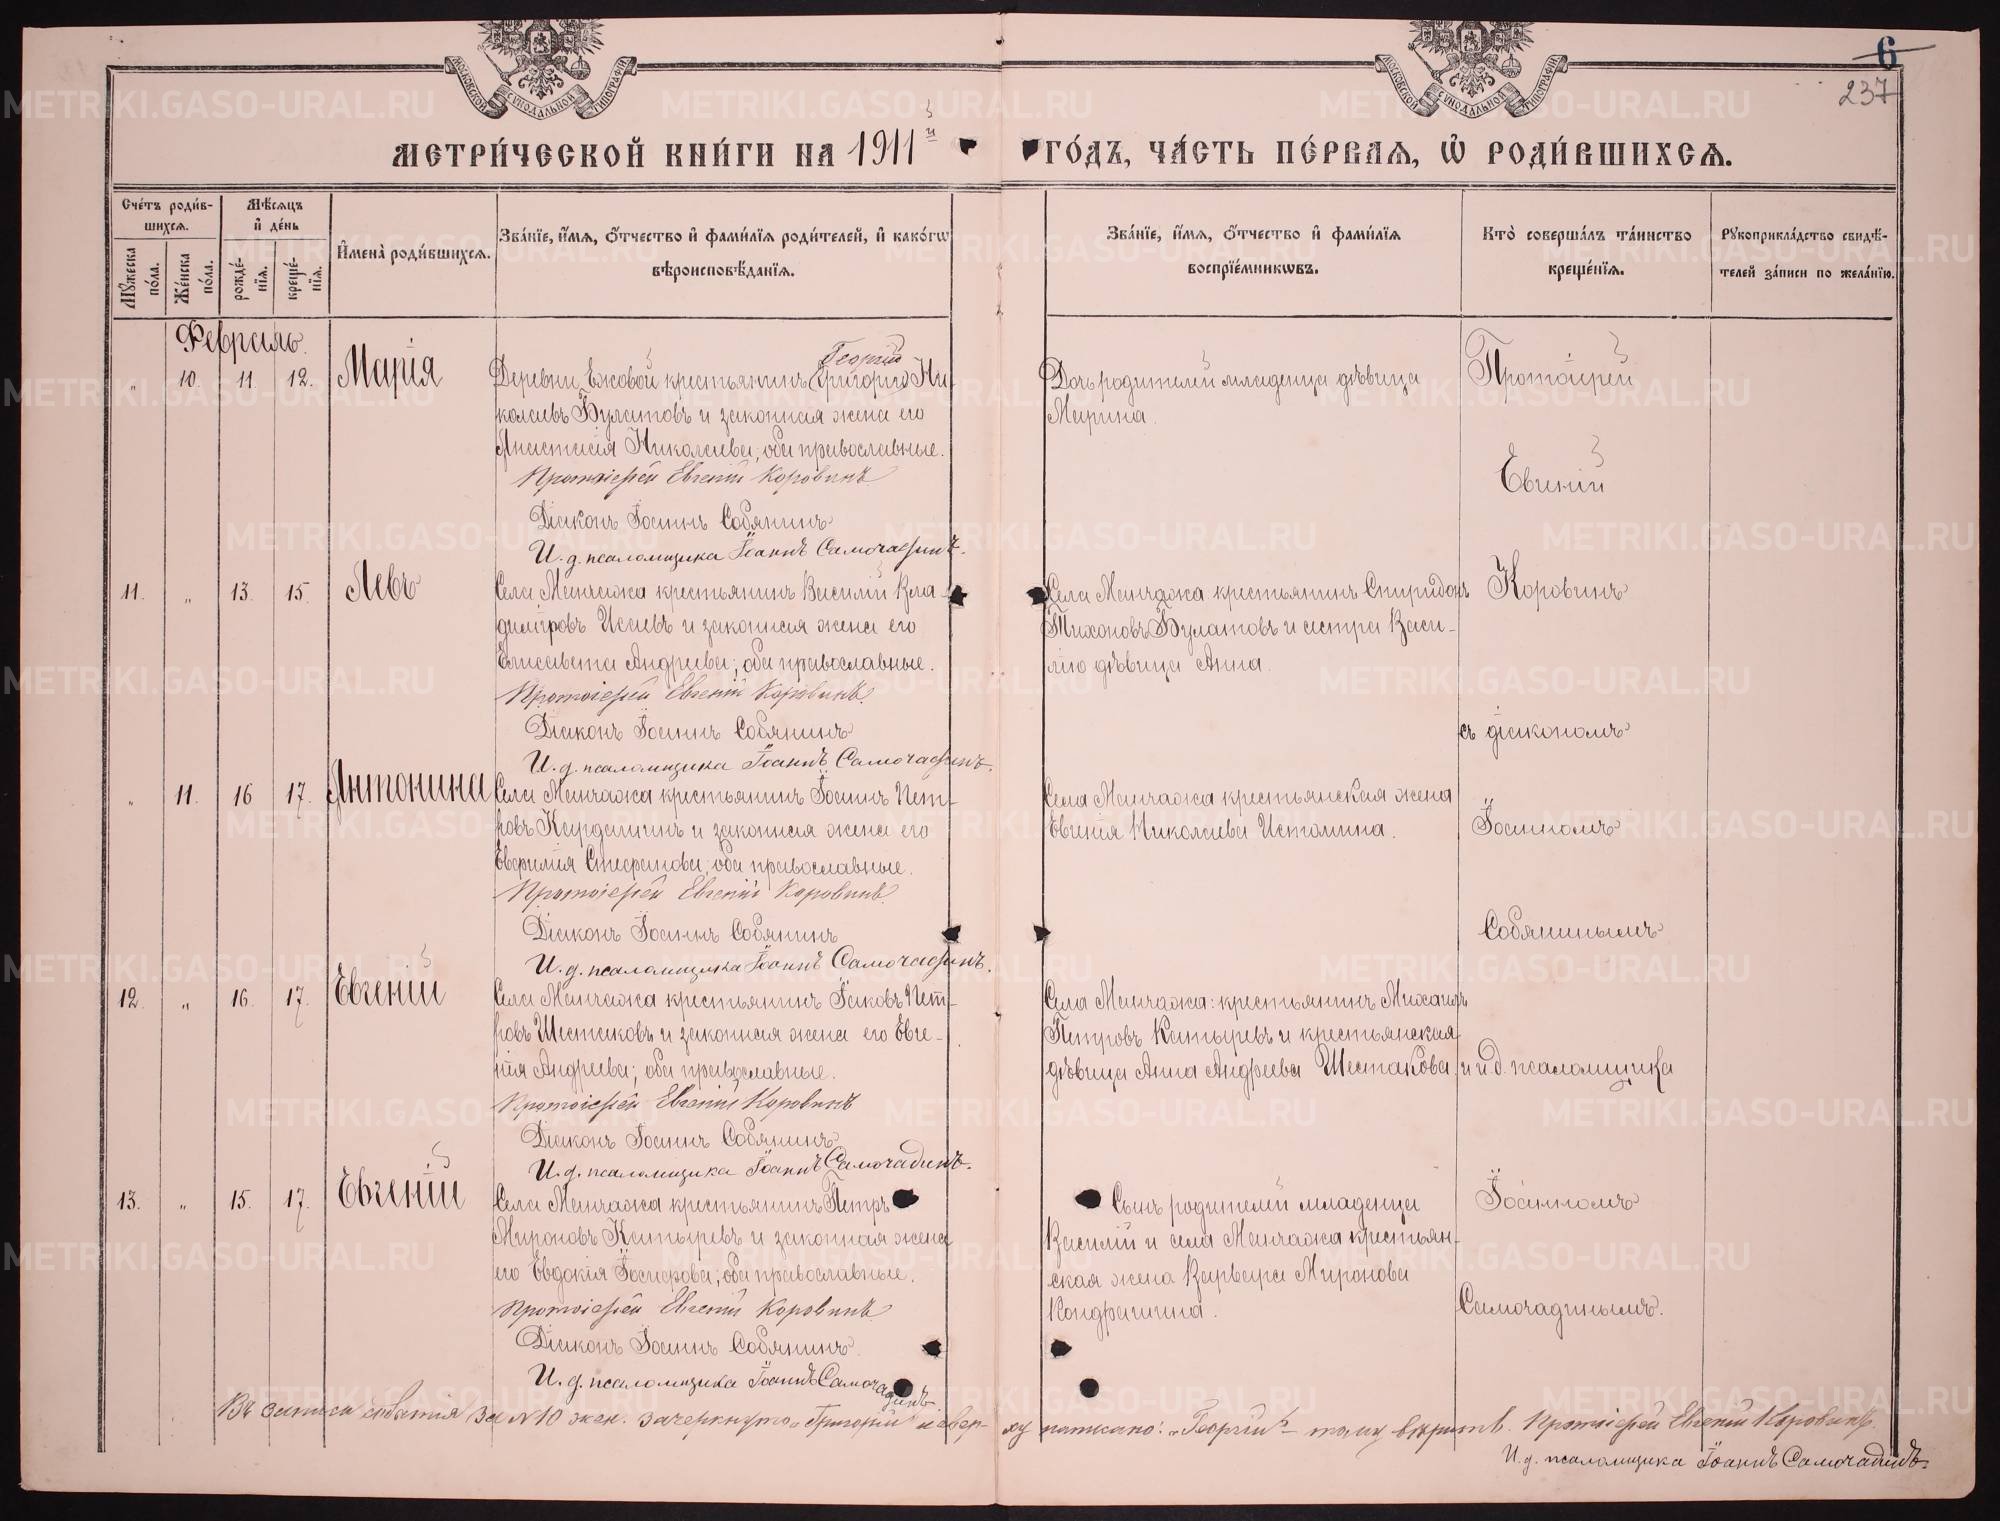 МОСКОВСКОЙ СѴНОДАЛЬНОЙ ТИПОГРАФІИ
МОСКОВСКОЙ СѴНОДАЛЬНОЙ ТИПОГРАФІИ
6
237
МЕТРИ́ЧЕСКОЙ КНИ́ГИ НА 1911й
ГО́ДЪ, ЧА́СТЬ ПЕ́РВАѦ, Ѽ РОДИ́ВШИХСѦ.
Сче́тъ роди́в-
шихсѧ.
Мꙋ́жеска по́ла.
Же́нска по́ла.
Мѣ́сѧцъ
и҆ де́нь
рожде́-нїѧ.
креще́-нїѧ.
И҆мена̀ роди́вшихсѧ.
Зва́нїе, и҆́мѧ, ѻ҆́тчество и҆ фами́лїѧ роди́телей, и҆ како́гѡ
вѣроисповѣ́данїѧ.
Зва́нїе, и҆́мѧ, ѻ҆́тчество и҆ фами́лїѧ
воспрїе́мникѡвъ.
Кто̀ соверша́лъ та́инство
креще́нїѧ.
Рꙋкоприкла́дство свидѣ́-
телей за́писи по жела́нїю.
Февраль.
„ 10. 11. 12. Марія
Георгій
Деревни Ежовой крестьянинъ Григорій Ни-
колаевъ Булатовъ и законная жена его
Анастасія Николаева, оба православные.
Протоіерей Евгеній Коровинъ
Діаконъ Іоаннъ Собянинъ
И. д. псаломщика Іоаннъ Самочадинъ.
Дочь родителей младенца дѣвица
Марина.
Протоіерей
Евгеній
11. „ 13. 15. Левъ
Села Манчажа крестьянинъ Василій Вла-
диміровъ Исаевъ и законная жена его
Елисавета Андреева; оба православные.
Протоіерей Евгеній Коровинъ
Діаконъ Іоаннъ Собянинъ
И. д. псаломщика Іоаннъ Самочадинъ.
Села Манчажа крестьянинъ Спиридонъ
Тихоновъ Булатовъ и сестра Васи-
лію дѣвица Анна.
Коровинъ
съ діакономъ
„ 11. 16 17. Антонина
Села Манчажа крестьянинъ Іоаннъ Пет-
ровъ и законная жена его
Евфимія Стефанова; оба православные.
Протоіерей Евгеній Коровинъ.
Діаконъ Іоаннъ Собянинъ
И. д. псаломщика Іоаннъ Самочадинъ.
Села Манчажа крестьянская жена
Евгенія Николаева Истомина.
Іоанномъ
Собянинымъ
12. „ 16. 17. Евгеній
Села Манчажа крестьянинъ Іаковъ Пет-
ровъ Шестаковъ и законная жена его Евге-
нія Андреева; оба православные.
Протоіерей Евгеній Коровинъ
Діаконъ Іоаннъ Собянинъ
И. д. псаломщика Іоаннъ Самочадинъ.
Села Манчажа: крестьянинъ Михаилъ
Петровъ Катыревъ и крестьянская
дѣвица Анна Андреева Шестакова.
и и. д. псаломщика
13. „ 15. 17. Евгеній
Села Манчажа крестьянинъ Петръ
Мироновъ Катыревъ и законная жена
его Евдокія Іосифова; оба православные.
Протоіерей Евгеній Коровинъ
Діаконъ Іоаннъ Собянинъ.
И. д. псаломщика Іоаннъ Самочадинъ
Сынъ родителей младенца
Василій и села Манчажа крестьян-
ская жена Варвара Миронова
Кондрашина.
Іоанномъ
Самочадинымъ.
Въ записи событія за №10 жен. зачеркнуто „Григорій“ и свер-
ху написано: „Георгій“ – тому вѣрить. Протоіерей Евгеній Коровинъ.
И. д. псаломщика Іоаннъ Самочадинъ.
METRIKI.GASO-URAL.RU